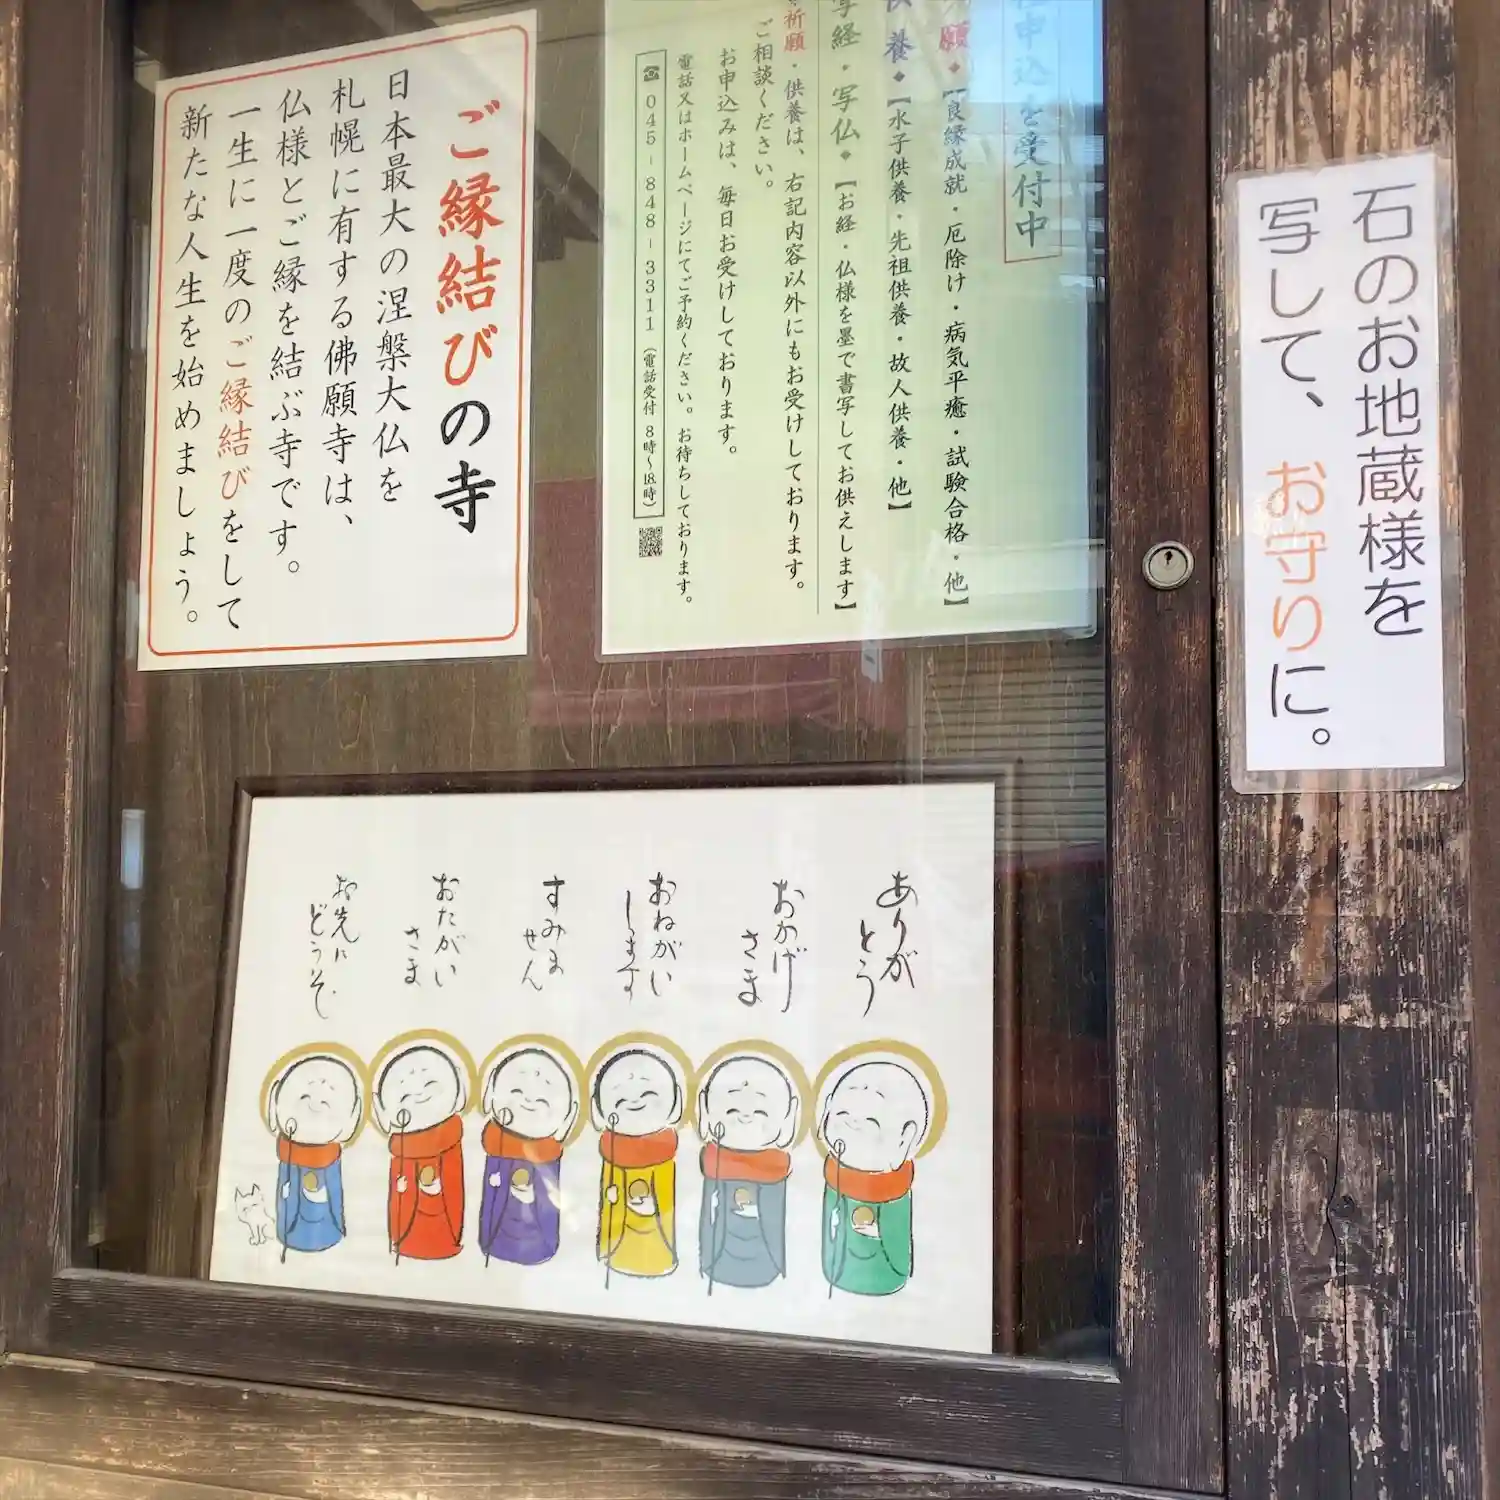 ご縁結びの寺
日本最大の涅槃大仏を
札幌に有する佛願寺は、
仏様とご縁を結ぶ寺です。
一生に一度のご縁結びをして
新たな人生を始めましょう。
申込を受付中
願◆【良縁成就・厄除け・病気平癒・試験合格・他】
供養◆【水子供養・先祖供養・故人供養・他】
写経・写仏◆【お経・仏様を墨で書写してお供えします】
祈願・供養は、右記内容以外にもお受けしております。
ご相談ください。
お申込みは、毎日お受けしております。
電話又はホームページにてご予約ください。お待ちしております。
☎045-848-3311(電話受付 8時〜18時)
石のお地蔵様を
写して、お守りに。
ありが
とう
おかげ
さま
おねがい
します
すみま
せん
おたがい
さま
お先に
どうぞ